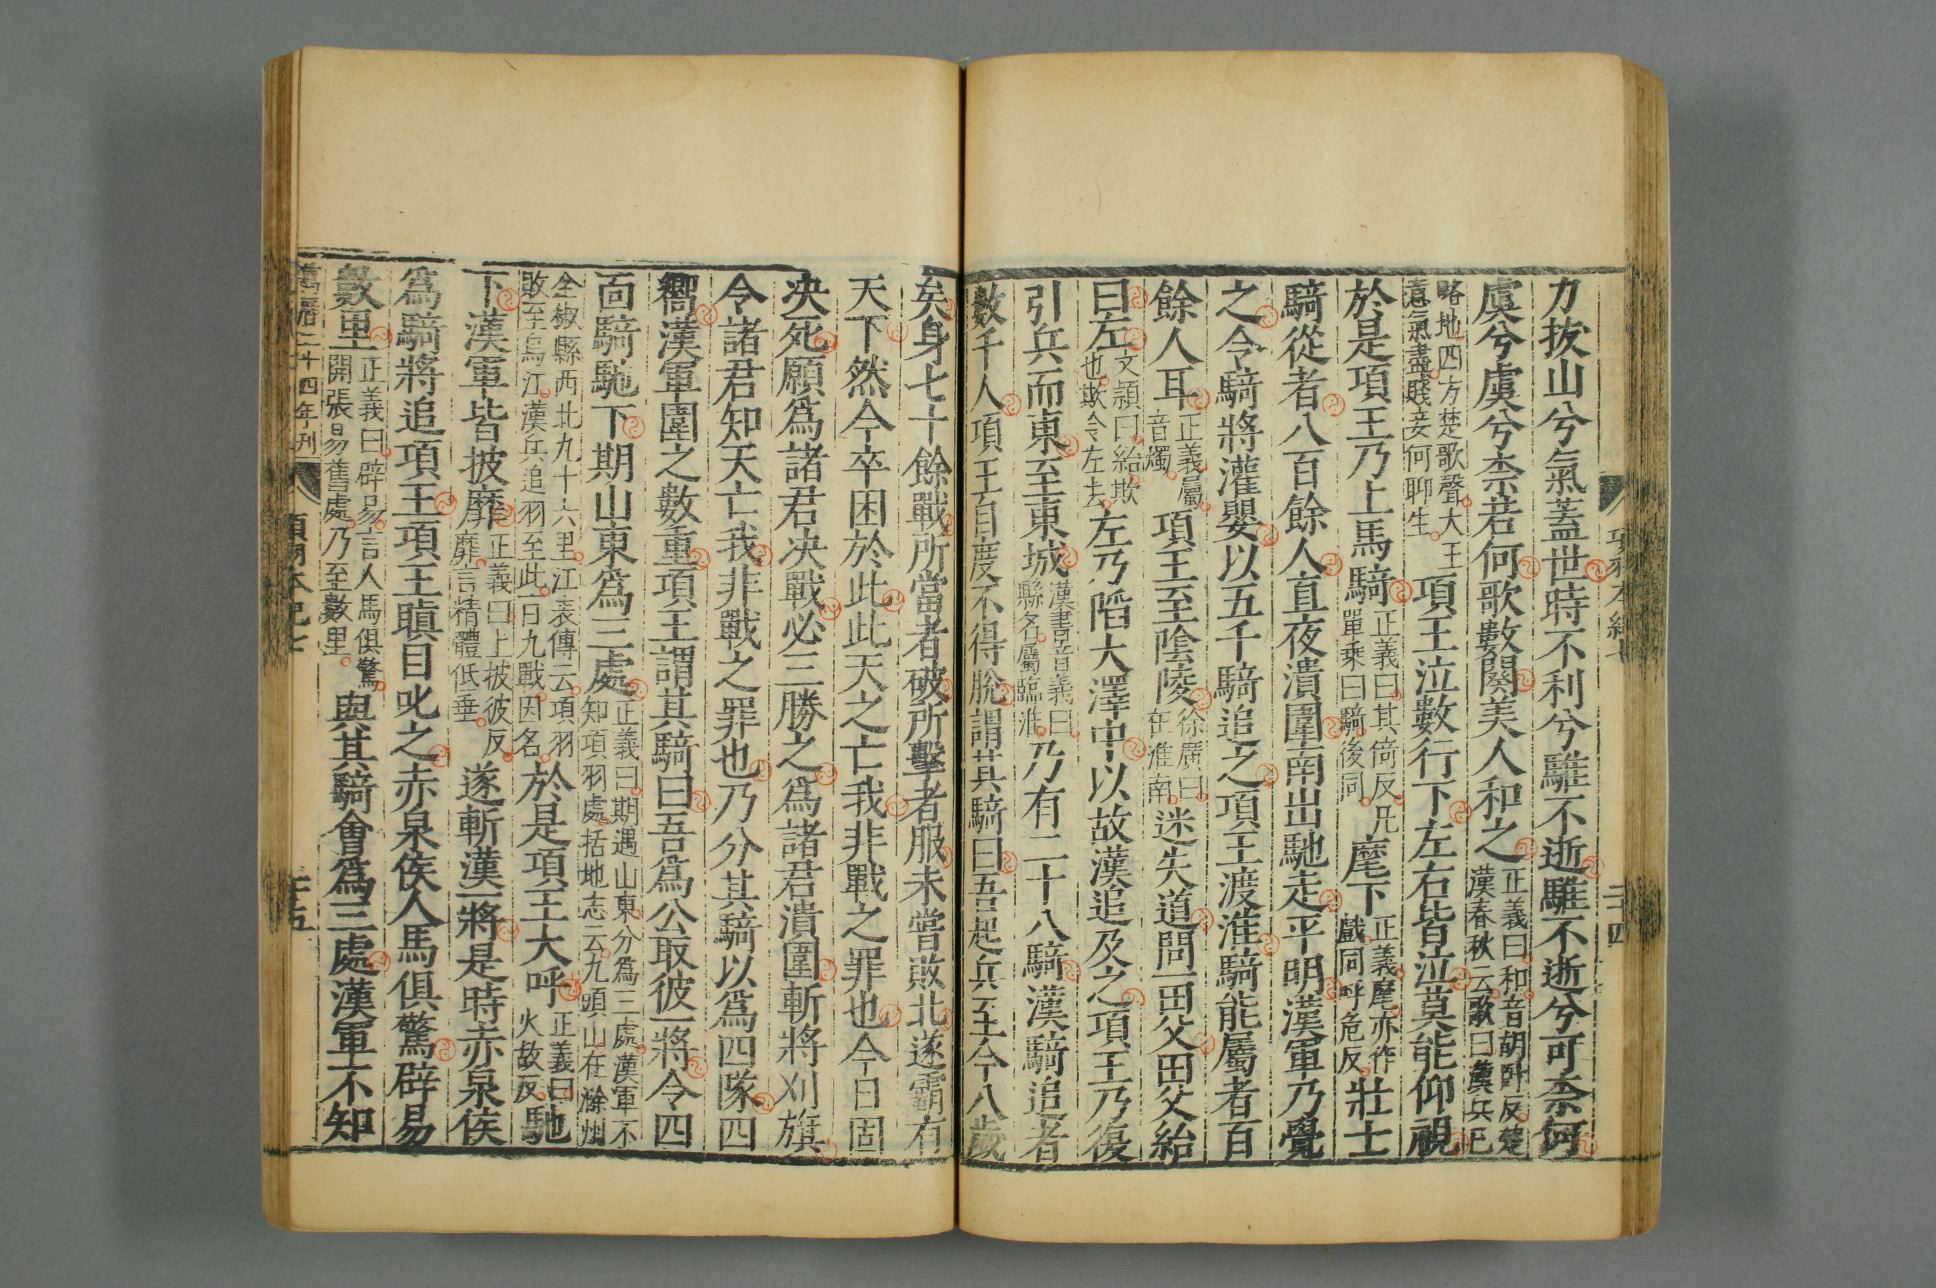 項羽本紀七
二十四
力拔山兮氣蓋世時不利兮騅不逝騅不逝兮可柰何
虞兮虞兮柰若何歌數闋美人和之正義曰和音胡卧反楚漢春秋云歌曰漢兵已
略地四方楚歌聲大王意氣盡賤妾何聊生項王泣數行下左右皆泣莫能仰視
於是項王乃上馬騎正義曰其倚反凡單乘曰騎後同麾下正義麾亦作戲同呼危反壯士
騎從者八百餘人直夜潰圍南出馳走平明漢軍乃覺
之令騎將灌嬰以五千騎追之項王渡淮騎能屬者百
餘人耳正義屬音燭項王至陰陵徐廣曰在淮南迷失道問一田父田父紿
曰左文頴曰紿欺也欺令左去左乃陷大澤中以故漢追及之項王乃復
引兵而東至東城漢書音義曰縣名屬臨淮乃有二十八騎漢騎追者
數千人項王自度不得脫謂其騎曰吾起兵至今八歲
矣身七十餘戰所當者破所擊者服未嘗敗北遂霸有
天下然今卒困於此此天之亡我非戰之罪也今日固
決死願為諸君決戰必三勝之為諸君潰圍斬將刈旗
令諸君知天亡我非戰之罪也乃分其騎以為四隊四
嚮漢軍圍之數重項王謂其騎曰吾為公取彼一將令四
靣騎馳下期山東為三處正義曰期遇山東分為三處漢軍不知項羽處括地志云九頭山在滁州
全椒縣西北九十六里江表傳云項羽敗至烏江漢兵追羽至此一日九戰因名於是項王大呼正義曰火故反馳
下漢軍皆披靡正義曰上披彼反靡言精體低垂遂斬漢一將是時赤泉侯
為騎將追項王項王瞋目叱之赤泉侯人馬俱驚辟易
數里正義曰辟易言人馬俱驚開張易舊處乃至數里與其騎會為三處漢軍不知
萬曆二十四年刊
項羽本紀七
二十五